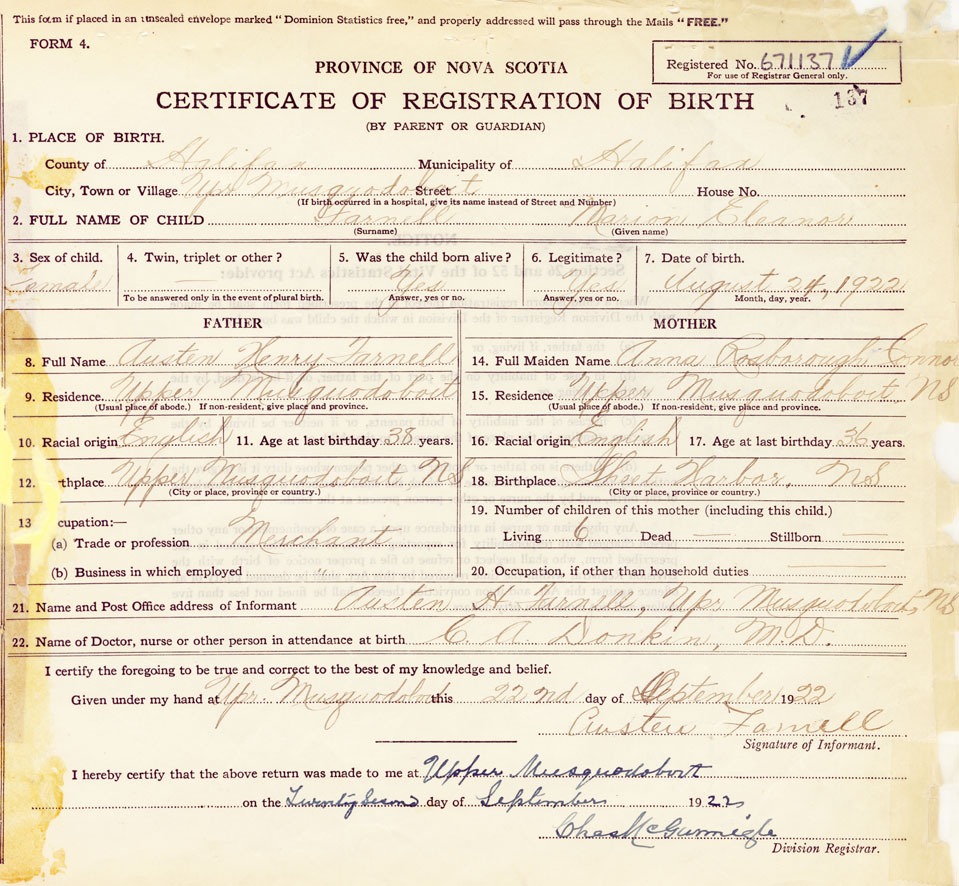 This form if placed in an unsealed envelope marked "Dominion Statistics free," and properly addressed will pass through the Mails "FREE."
FORM 4.
Registered No. 671137
For use of Registrar General only.
PROVINCE OF NOVA SCOTIA
CERTIFICATE OF REGISTRATION OF BIRTH 137
(BY PARENT OR GUARDIAN)
1. PLACE OF BIRTH.
County of Halifax Municipality of Halifax
City, Town or Village Upr Musquodoboit Street House No.
(If birth occurred in a hospital, give its name instead of Street and Number)
2. FULL NAME OF CHILD Farnell Marion Eleanore
(Surname) (Given name)
3. Sex of child. 4. Twin, triplet or other? 5. Was the child born alive? 6. Legitimate? 7. Date of birth.
Female — Yes Yes August 24, 1922
To be answered only in the event of plural birth. Answer, yes or no. Answer, yes or no. Month, day, year.
FATHER MOTHER
8. Full Name Austen Henry Farnell 14. Full Maiden Name Anna Rosborough Connor
9. Residence Upper Musquodoboit 15. Residence Upper Musquodoboit NS
(Usual place of abode.) If non-resident, give place and province. (Usual place of abode.) If non-resident, give place and province.
10. Racial origin English 11. Age at last birthday 38 years. 16. Racial origin English 17. Age at last birthday 36 years.
12. rthplace Upper Musquodoboit NS 18. Birthplace Sheet Harbor, NS
(City or place, province or country.) (City or place, province or country.)
13 cupation:— 19. Number of children of this mother (including this child.)
(a) Trade or profession Merchant Living 6 Dead — Stillborn —
(b) Business in which employed " 20. Occupation, if other than household duties —
21. Name and Post Office address of Informant Austen H Farnell, Upr Musquodoboit, NS
22. Name of Doctor, nurse or other person in attendance at birth C. A. Donkin, M.D.
I certify the foregoing to be true and correct to the best of my knowledge and belief.
Given under my hand at Upr. Musquodoboit this 22nd day of September 1922
Austen Farnell
Signature of Informant.
I hereby certify that the above return was made to me at Upper Musquodoboit
on the Twenty Second day of September 1922
Chas McGunnigle
Division Registrar.